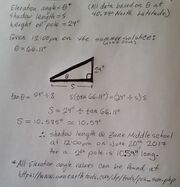 Elevation angle = θ°
Shadow length = S
Height of pole = 24"
(All data based on θ at
40.57° North Latitude)
Given 12:00pm on the summer solstice:
θ = 66.11°
24"
θ
S
tanθ = 24" ÷ S
S (tan 66.11°) = (24" ÷ S) S
S = 24" ÷ tan 66.11°
S = 10.585" ≈ 10.59"
∴ shadow length @ Zone Middle school
at 12:00pm on June 20th 2017
for a 2' pole is 10.59" long.
* All Elevation angle values can be found at